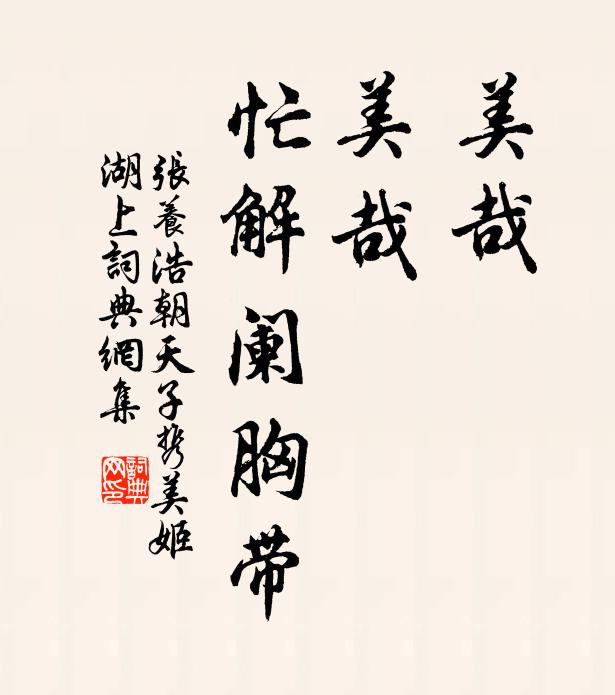 美哉
美哉
忙解阑胸带
張養浩朝天子携美姬
湖上詞典網集
詞典网印